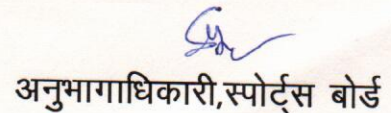 अनुभागाधिकारी,स्पोर्ट्स बोर्ड